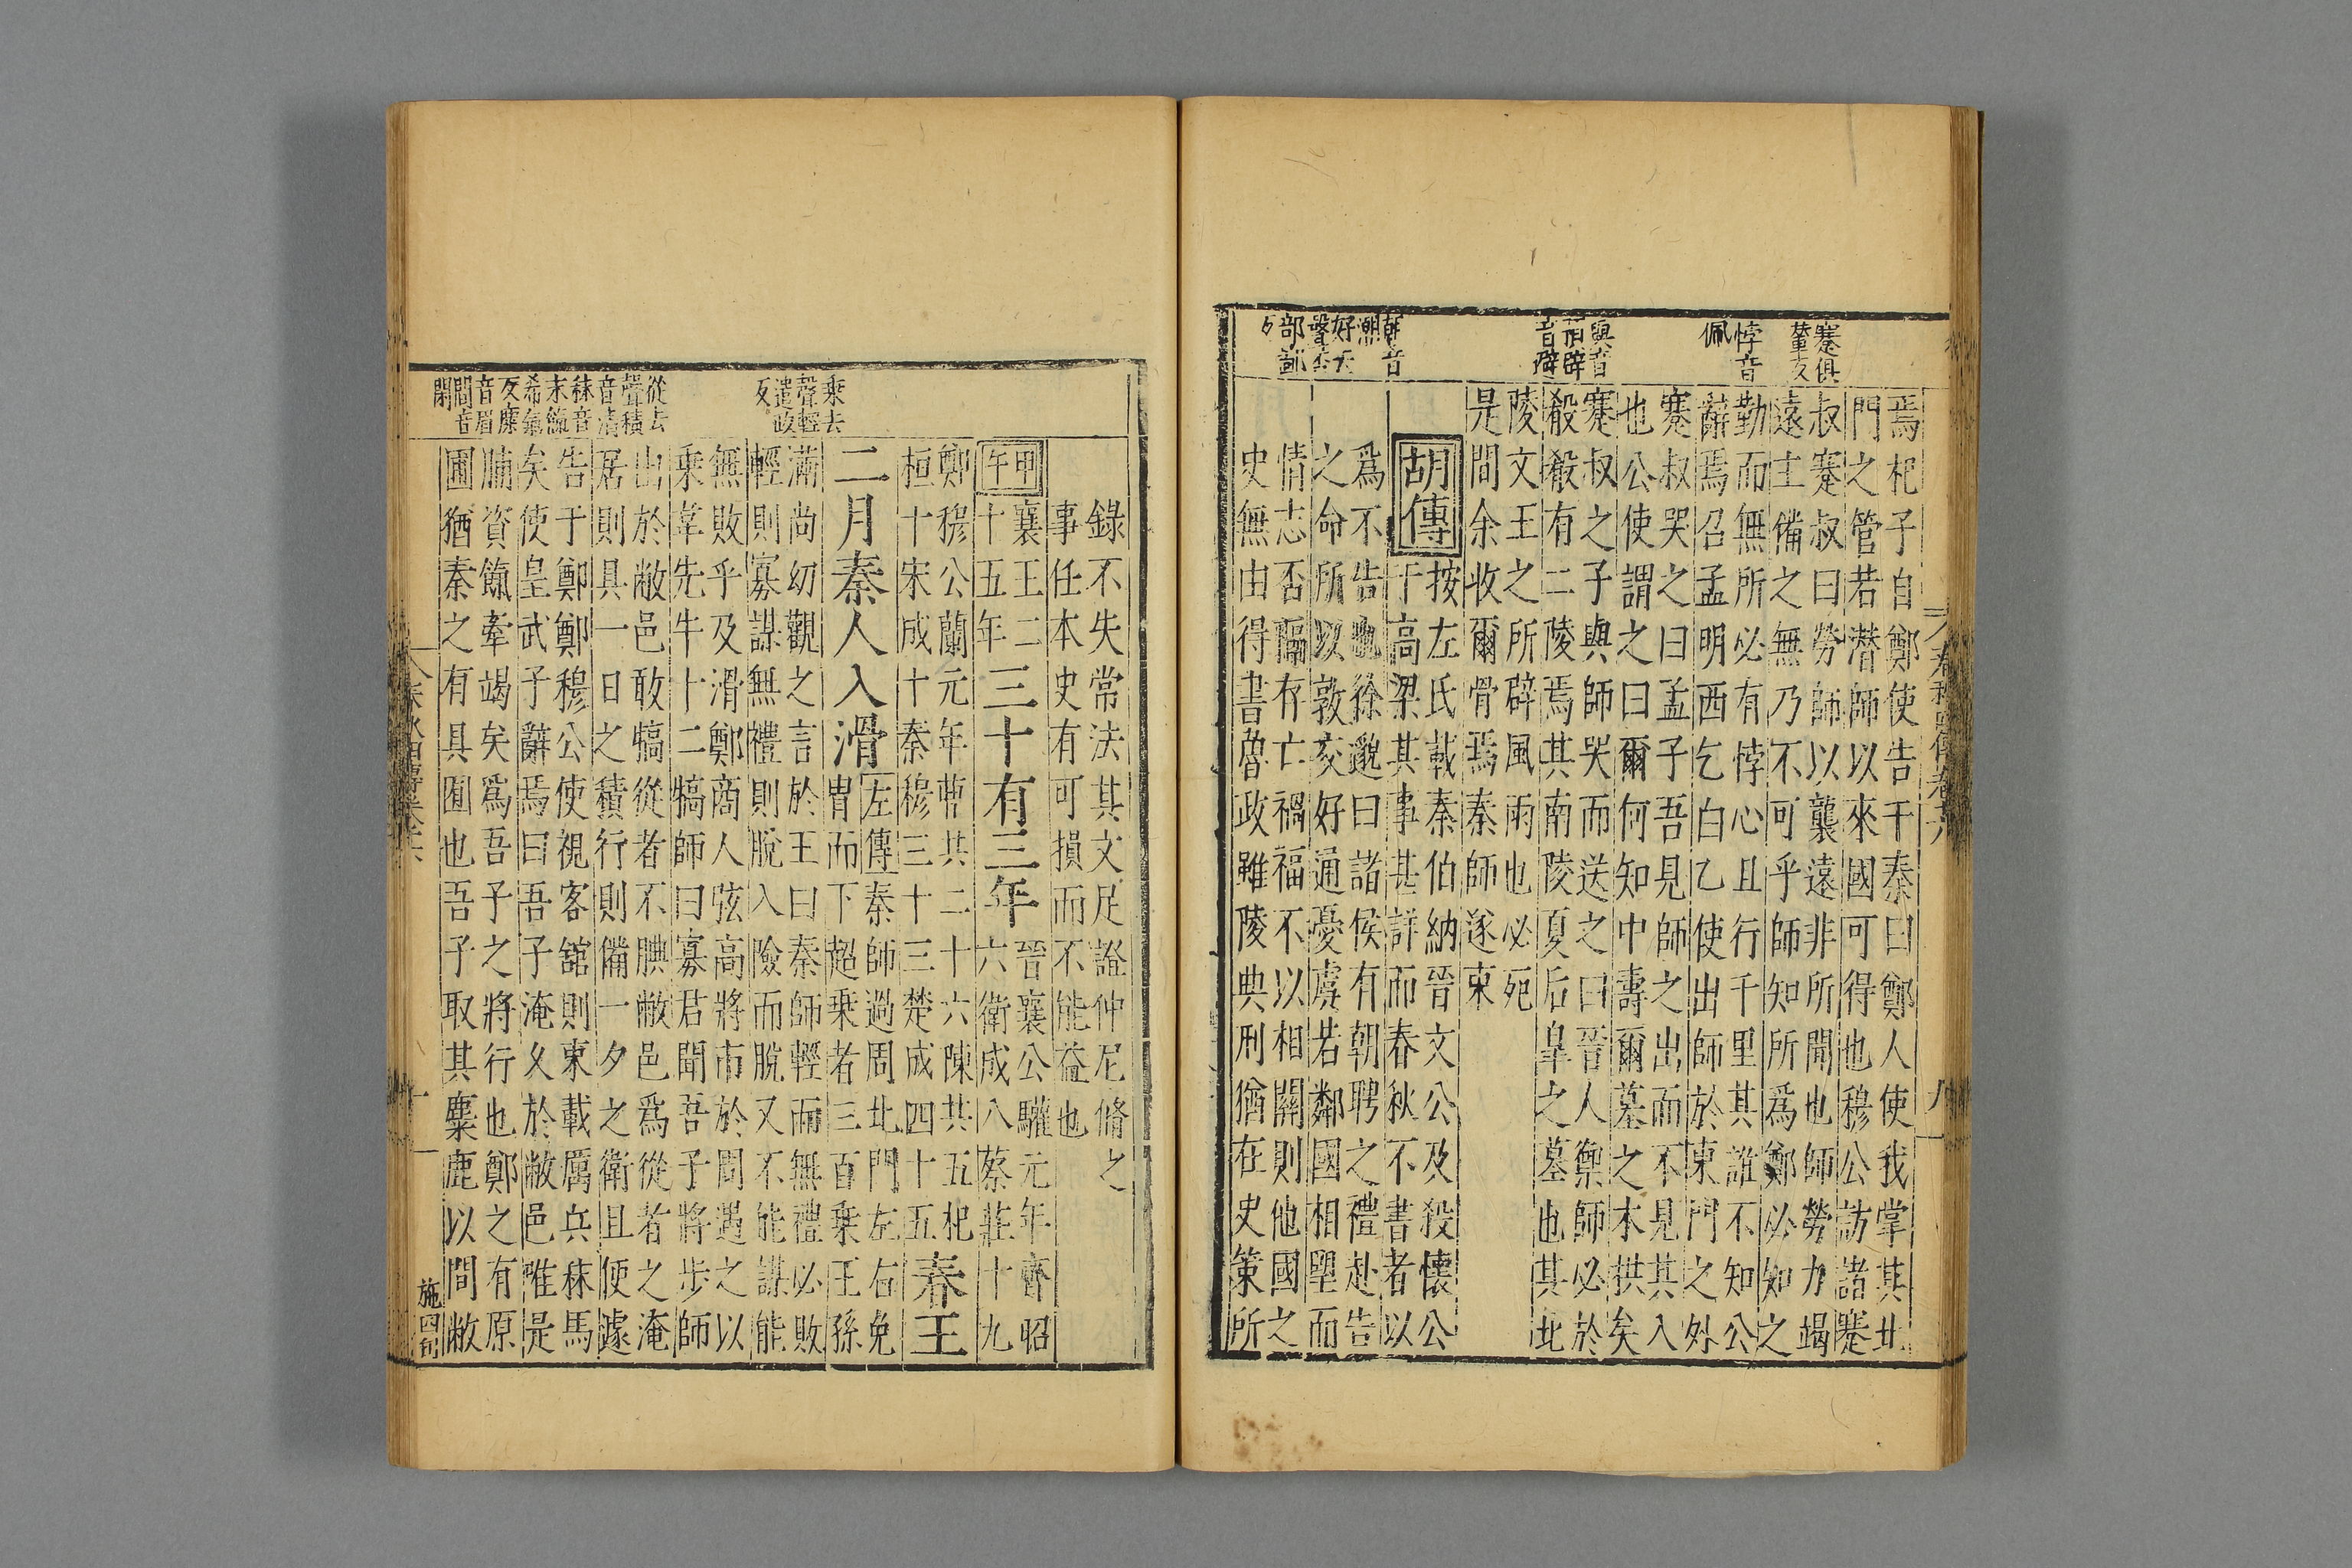 蹇俱
輦友
悖音
佩
與音
預辟
音避
朝音
潮
好去
聲否
部鄙
夕
焉杞子自鄭使告于秦曰鄭人使我掌其北
門之管若潜師以來國可得也穆公訪諸蹇
叔蹇叔曰勞師以襲遠非所聞也師勞力竭
遠主備之無乃不可乎師知所爲鄭必知之
勤而無所必有悖心且行千里其誰不知公
辭焉召孟明西乞白乙使出師於東門之外
蹇叔哭之曰孟子吾見師之出而不見其入
也公使謂之曰爾何知中壽爾墓之木拱矣
蹇叔之子與師哭而送之曰晉人禦師必於
殽殽有二陵焉其南陵夏后皐之墓也其北
陵文王之所辟風雨也必死
是間余收爾骨焉秦師遂東
胡傳
按左氏載秦伯納晉文公及殺懷公
于高梁其事甚詳而春秋不書者以
爲不告也徐邈曰諸侯有朝聘之禮赴告
之命所以敦交好通憂虞若鄰國相望而
情志否隔存亡禍福不以相關則他國之
史無由得書魯政雖陵典刑猶在史策所
乘去
聲輕
遣政
反
從去
聲積
音漬
秣音
末餼
希氣
反麋
音眉
間音
閑
錄不失常法其文足證仲尼脩之
事任本史有可損而不能益也
甲午
襄王二
十五年
三十有三年
晉襄公驩元年齊昭
六衛成八蔡莊十九
鄭穆公蘭元年曹共二十六陳共五杞
桓十宋成十秦穆三十三楚成四十五
春王
二月秦人入滑
左傳
秦師過周北門左右免
胄而下超乘者三百乘王孫
滿尚幼觀之言於王曰秦師輕而無禮必敗
輕則寡謀無禮則脫入險而脫又不能謀能
無敗乎及滑鄭商人弦高將市於周遇之以
乘韋先牛十二犒師曰寡君聞吾子將步師
出於敝邑敢犒從者不腆敝邑爲從者之淹
居則具一日之積行則備一夕之衛且使遽
告于鄭鄭穆公使視客舘則束載厲兵秣馬
矣使皇武子辭焉曰吾子淹久於敝邑唯是
脯資餼牽竭矣爲吾子之將行也鄭之有原
圃猶秦之有具囿也吾子取其麋鹿以間敝
施四旬